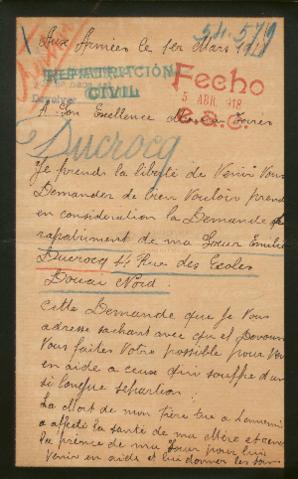 54.579
Aux Armées le 1er Mars 1918
REPATRIACIÓN
CIVIL
Fecho
5 ABR. 918
E.S.C.
A Son Excellence
Ducrocq
Je prends la liberté de Venir Vous
Demander de bien Vouloir prendre
en consideration la Demande de
rapatriment de ma Soeur Emilie
Ducrocq 24 Rue des Ecoles
Douai Nord.
Cette Demande que je Vous
adresse sachant avec quel Devoument
Vous faites Votre possible pour Venir
en aide a ceux qui souffre d'une
si longue separtion.
La Mort de mon frère tué a l'ennemi
a affecté la santé de ma Mère et
la présence de ma Soeur pour lui
Venir en aide et lui donner les soins